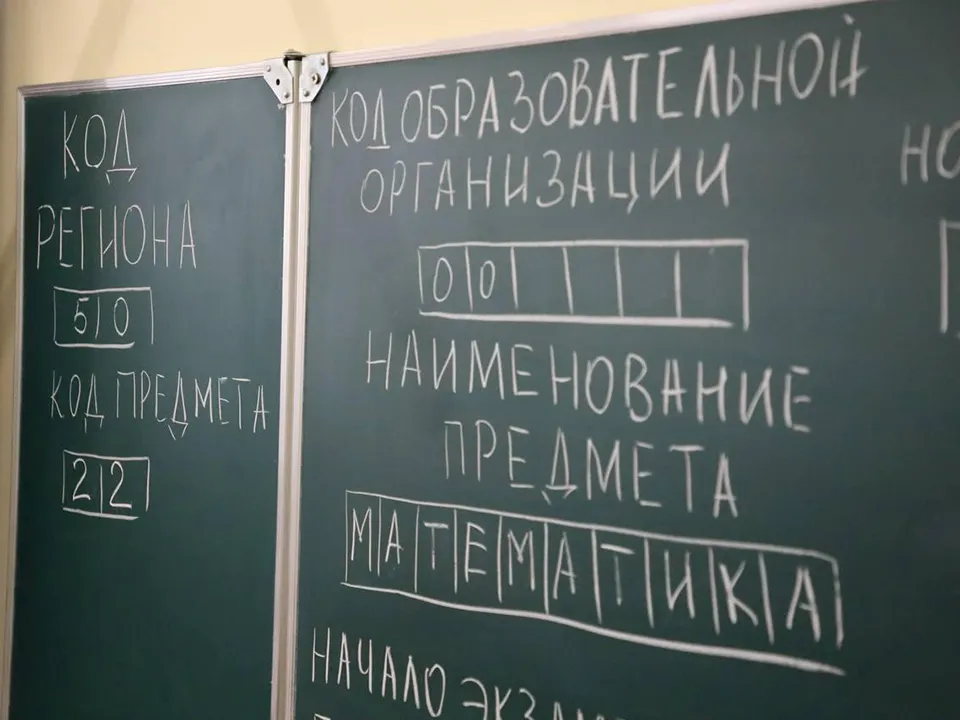 КОД
РЕГИОНА
50
КОД ПРЕДМЕТА
22
КОД ОБРАЗОВАТЕЛЬНОЙ
ОРГАНИЗАЦИИ
00
НАИМЕНОВАНИЕ
ПРЕДМЕТА
МАТЕМАТИКА
НАЧАЛО